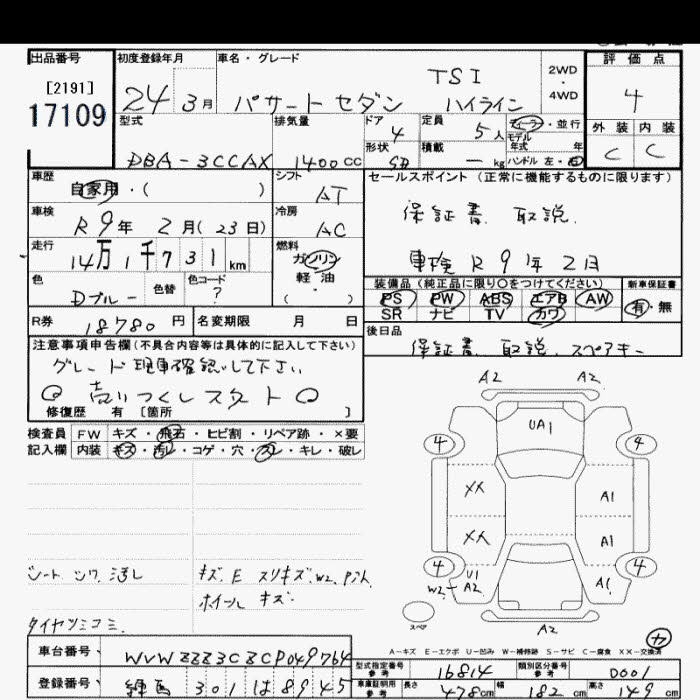 出品番号
[2191]
17109
初度登録年月
24 3月
車名・グレード
TSI
パサートセダン ハイライン
2WD
・
4WD
評価点
4
外装 内装
C C
型式
DBA-3CCAX
排気量
1400cc
ドア
4
形状
SD
定員
5人
積載
ー kg
ディーラー・並行
モデル
年式 年
ハンドル 左・右
車歴
自家用・( )
シフト
AT
セールスポイント(正常に機能するものに限ります)
保証書 取説
車検 R9年2月
車検
R9年 2月(23日)
冷房
AC
走行
14万1千731km
燃料
ガソリン
軽・油
( )
色
Dブルー
色替
色コード
?
装備品(純正品に限り○をつけてください)
PS PW ABS エアB AW
SR ナビ TV カワ
新車保証書
有・無
R券 18780円
名変期限 月 日
後日品
保証書 取説 スペアキー
注意事項申告欄(不具合内容等は具体的に記入して下さい)
グレード現車確認して下さい
◎売りつくしスタート◎
修復歴 有 [箇所 ]
検査員
記入欄
FW キズ・飛石・ヒビ割・リペア跡・×要
内装 キズ・汚レ・コゲ・穴・スレ・キレ・破レ
シートシワ、汚レ
キズ、E スリキズ、W2
ホイールキズ
タイヤツミコミ
A2 A2
UA1
4 4
XX A1
XX A1
4 4
U1
W2 A2
A1
A2
スペア
A-キズ E-エクボ U-凹み W-補修跡 S-サビ C-腐食 XX-交換済
車台番号
WVWZZZ3CZCP049764
登録番号
練馬 301 は 8945
型式指定番号
参考
16814
類別区分番号
参考
0001
車庫証明用
参考
長さ 478cm 幅 182cm 高さ 149cm